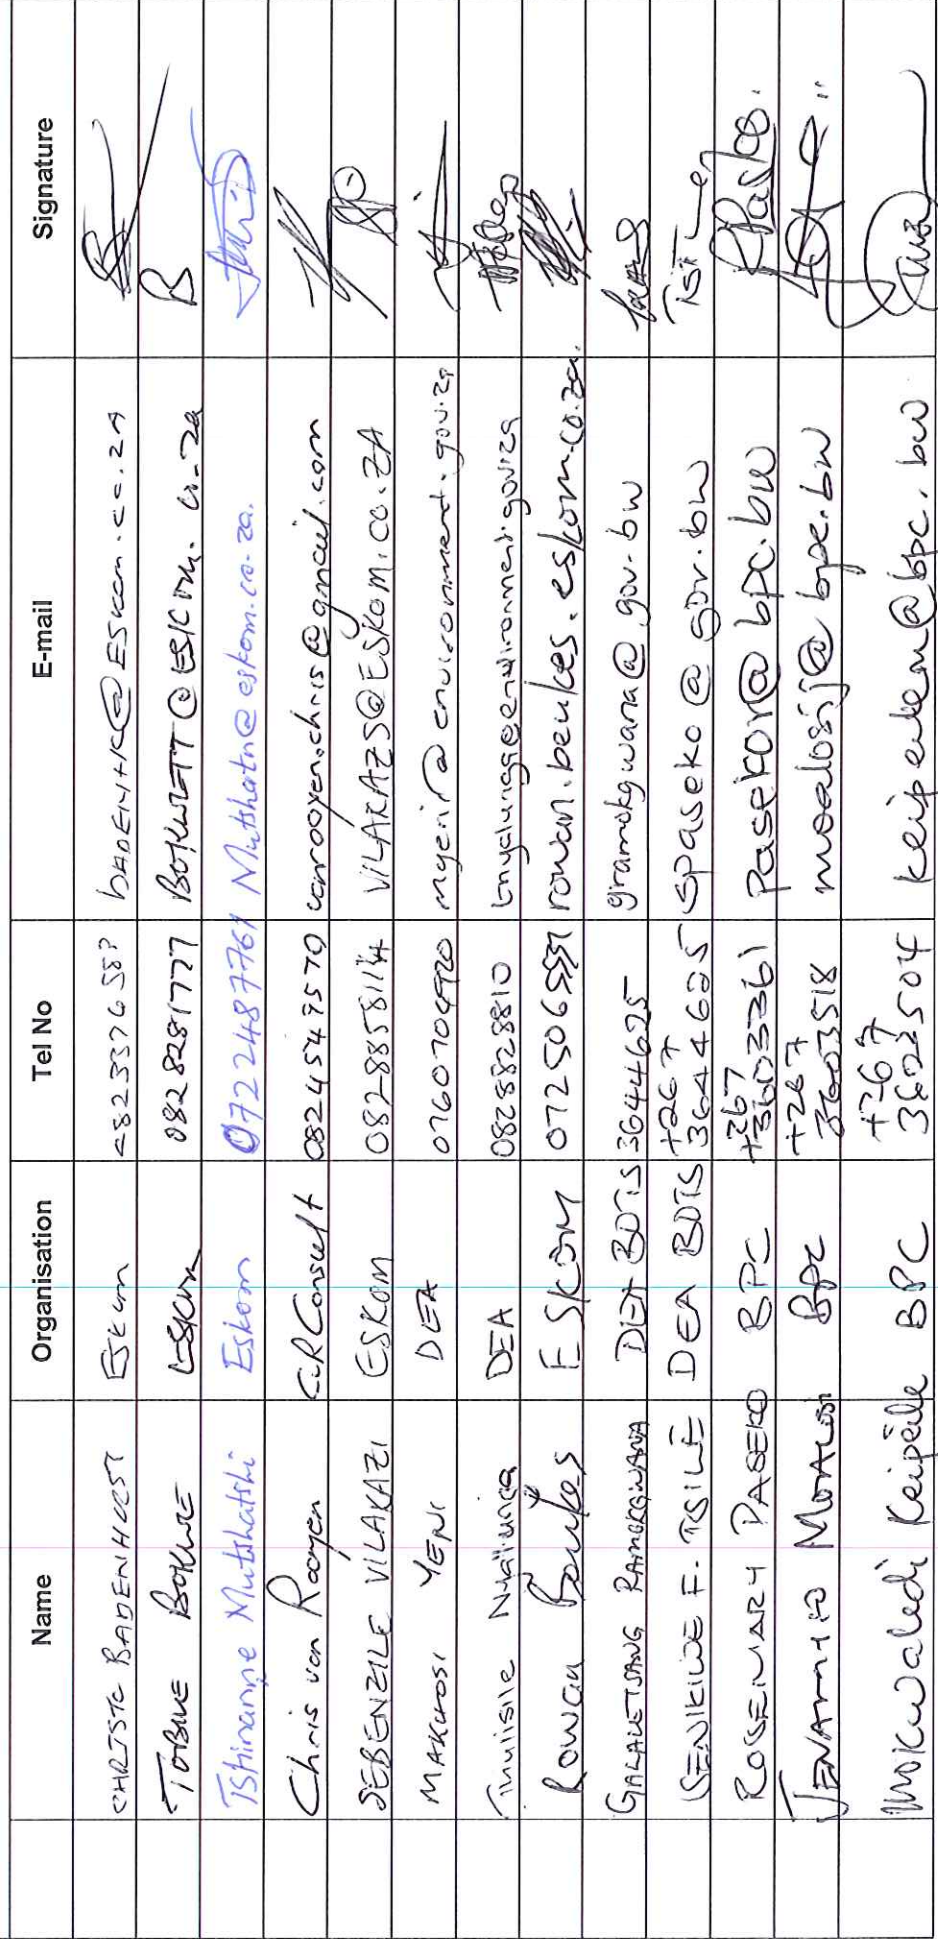 Name Organisation Tel No E-mail Signature
CHRISTE BADENHORST Eskom 0823376587 bADENHK@ESkom.co.za
TOBILE BOKWE ESKOM 0828281777 BOKWETT@ESKOM.co.za
Tshinanne Mutshatshi Eskom 0722487761 Mutshatn@eskom.co.za.
Chris van Rooyen CvRConsult 0824549570 vanrooyen.chris@gmail.com
SEBENZILE VILAKAZI ESKOM 0828858114 VILAKAZS@ESKOM.CO.ZA
MAKHOSI YENI DEA 0760704920 myeni@environment.gov.za
DEA 0828823810
Rowan Beukes ESKOM rowan.beukes.eskom.co.za.
GALALETSANG RAMOKGWANA DEA BOTS 3644625 gramokgwana@gov.bw
SENIKIWE F. TSILE DEA BOTS +267 3644625 spaseko@gov.bw
ROSEMARY PASEKO BPC +267 3603361 Pasekor@bpc.bw
MOALOSI BPC +267 3603518 moalosij@bpc.bw
Mokwaledi Keipeile BPC +267 keipeilem@bpc.bw